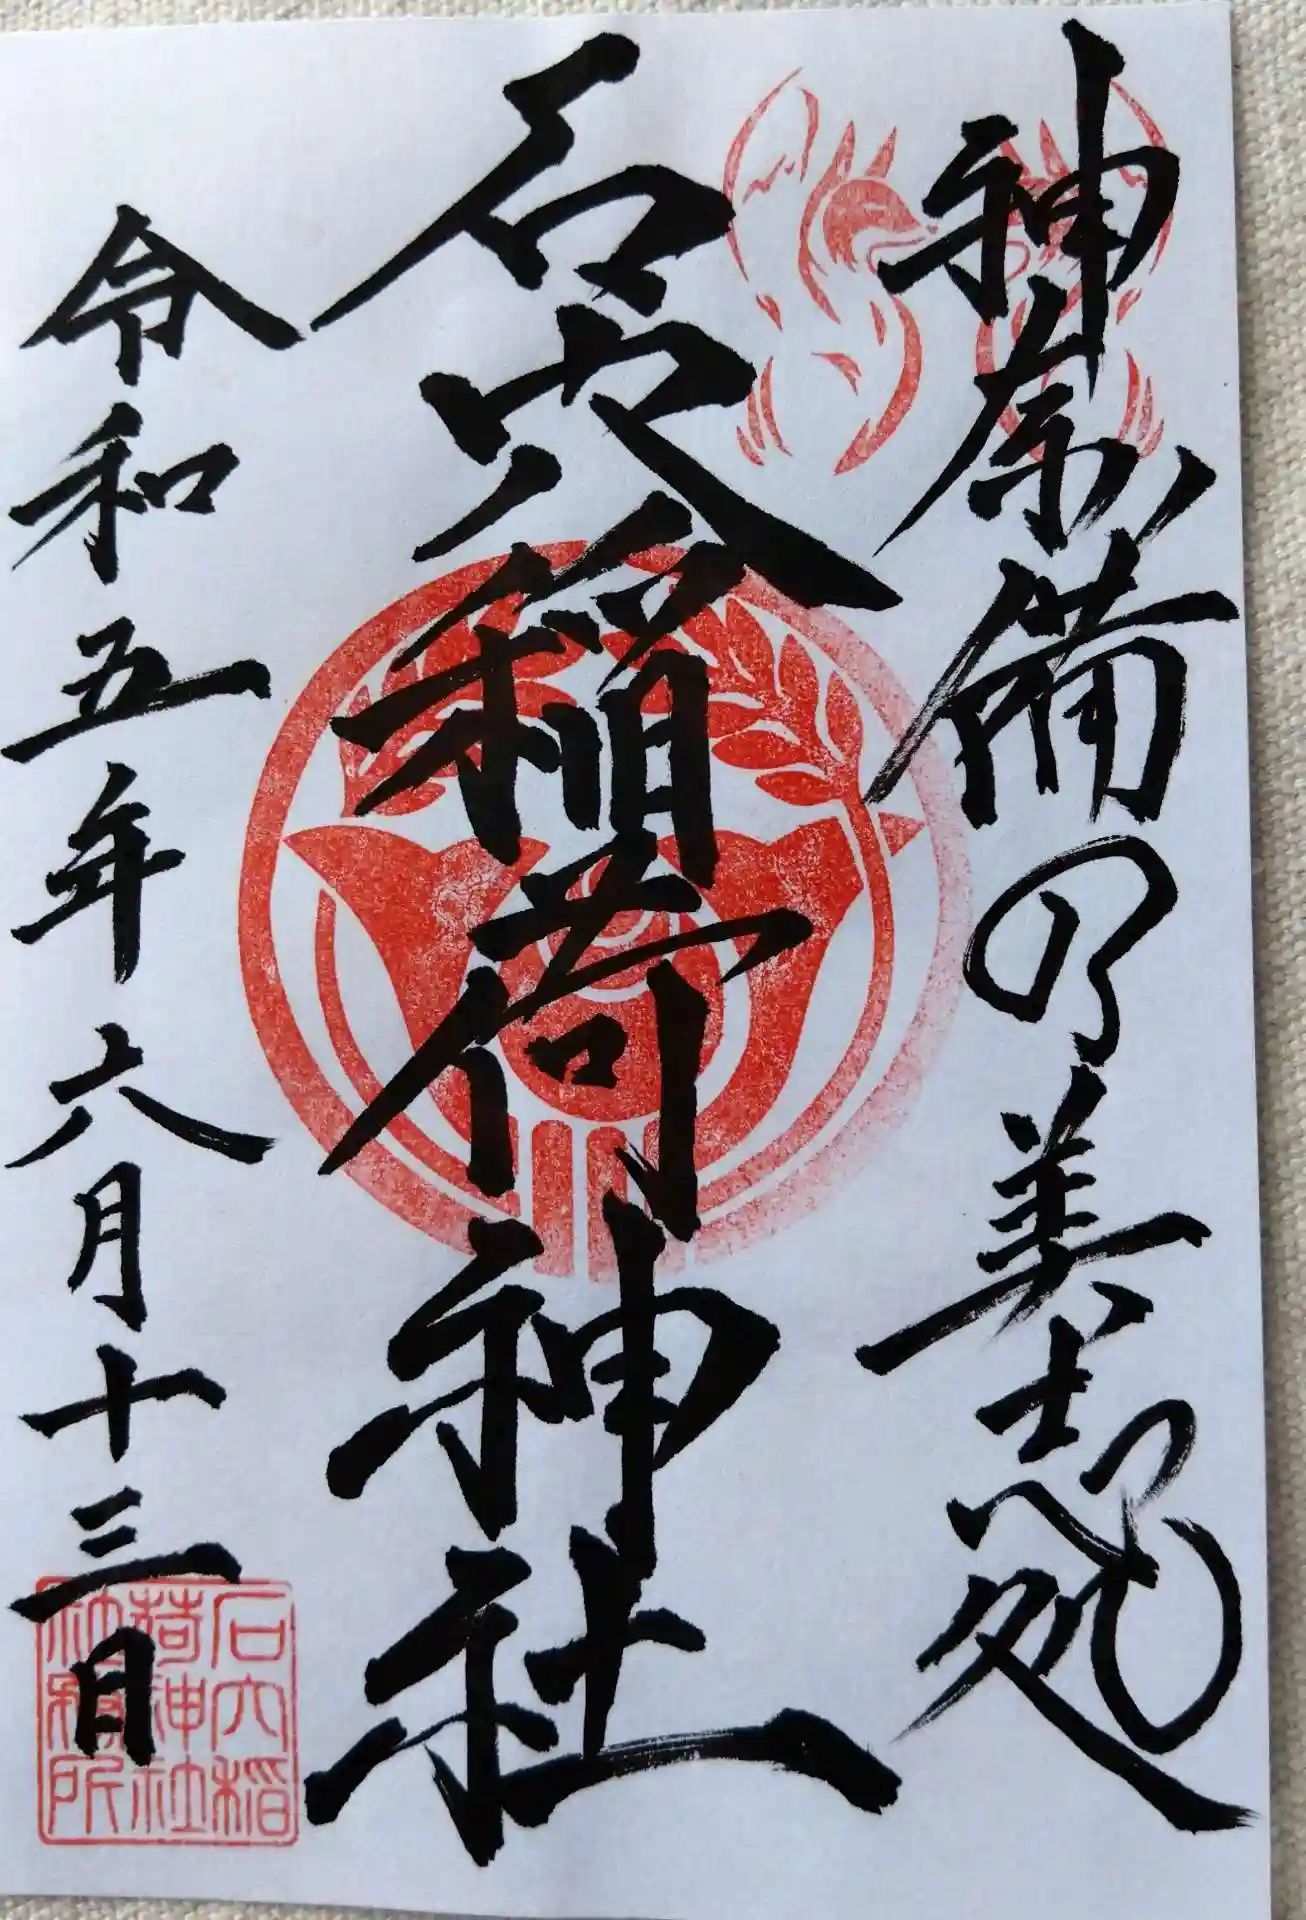 神奈備の美志処
石穴稲荷神社
令和五年六月十三日
石穴稲
荷神社
社務所